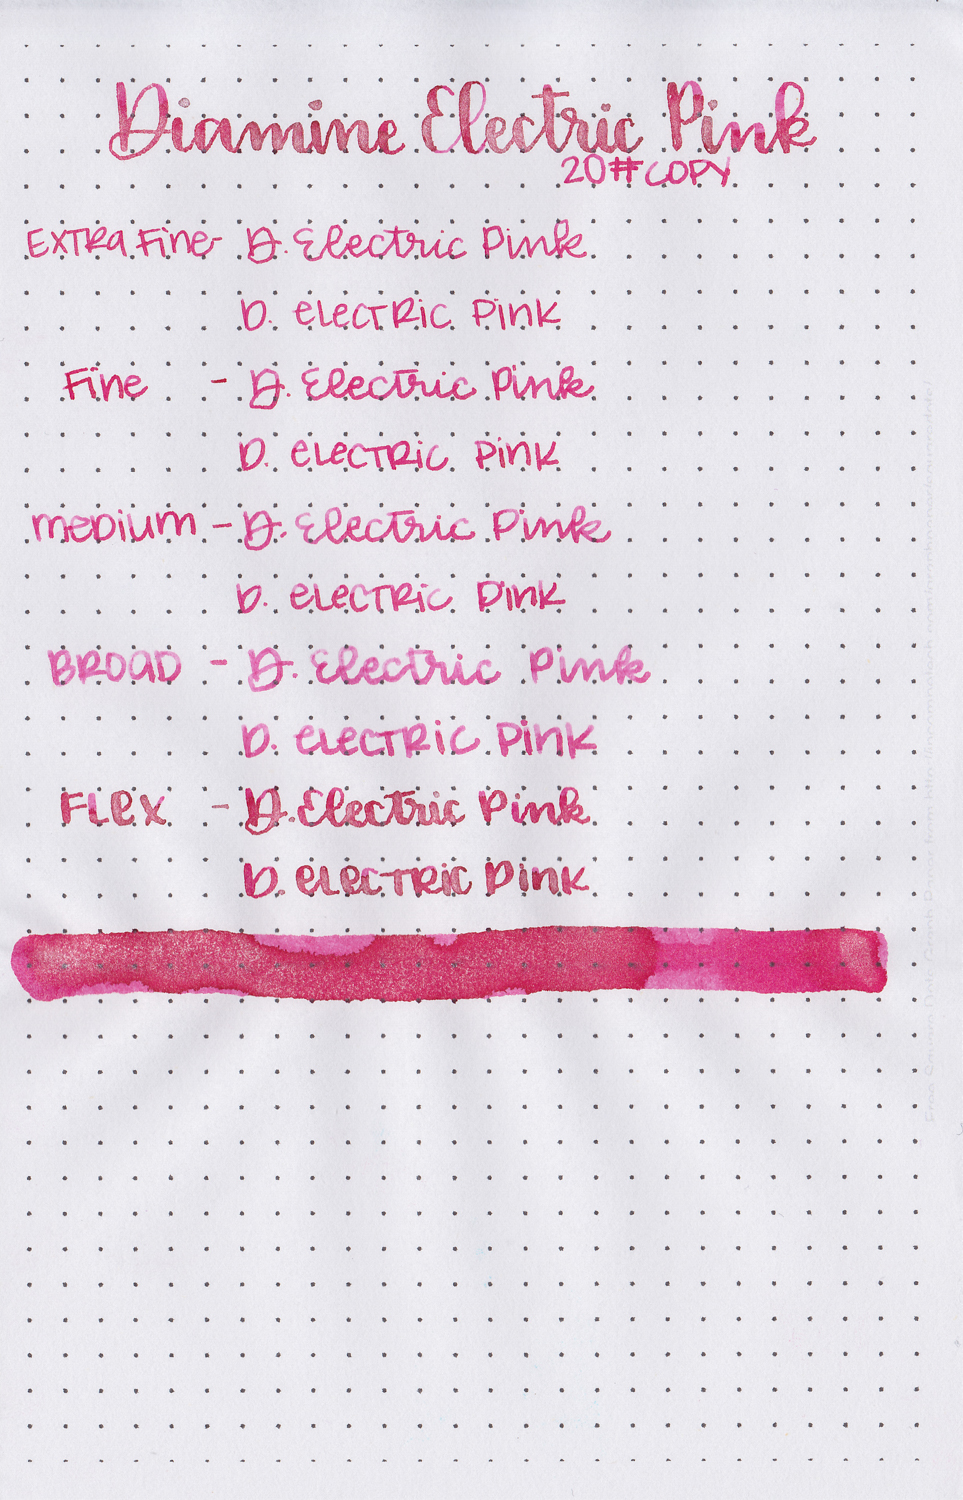 Diamine Electric Pink
20# COPY
EXTRA Fine - D. Electric Pink
D. eLecTRic Pink
Fine - D. Electric Pink
D. eLecTRic Pink
meDium - D. Electric Pink
D. eLecTRic Pink
BROAD - D. Electric Pink
D. eLecTRic Pink
FLex - D. Electric Pink
D. eLecTRic Pink